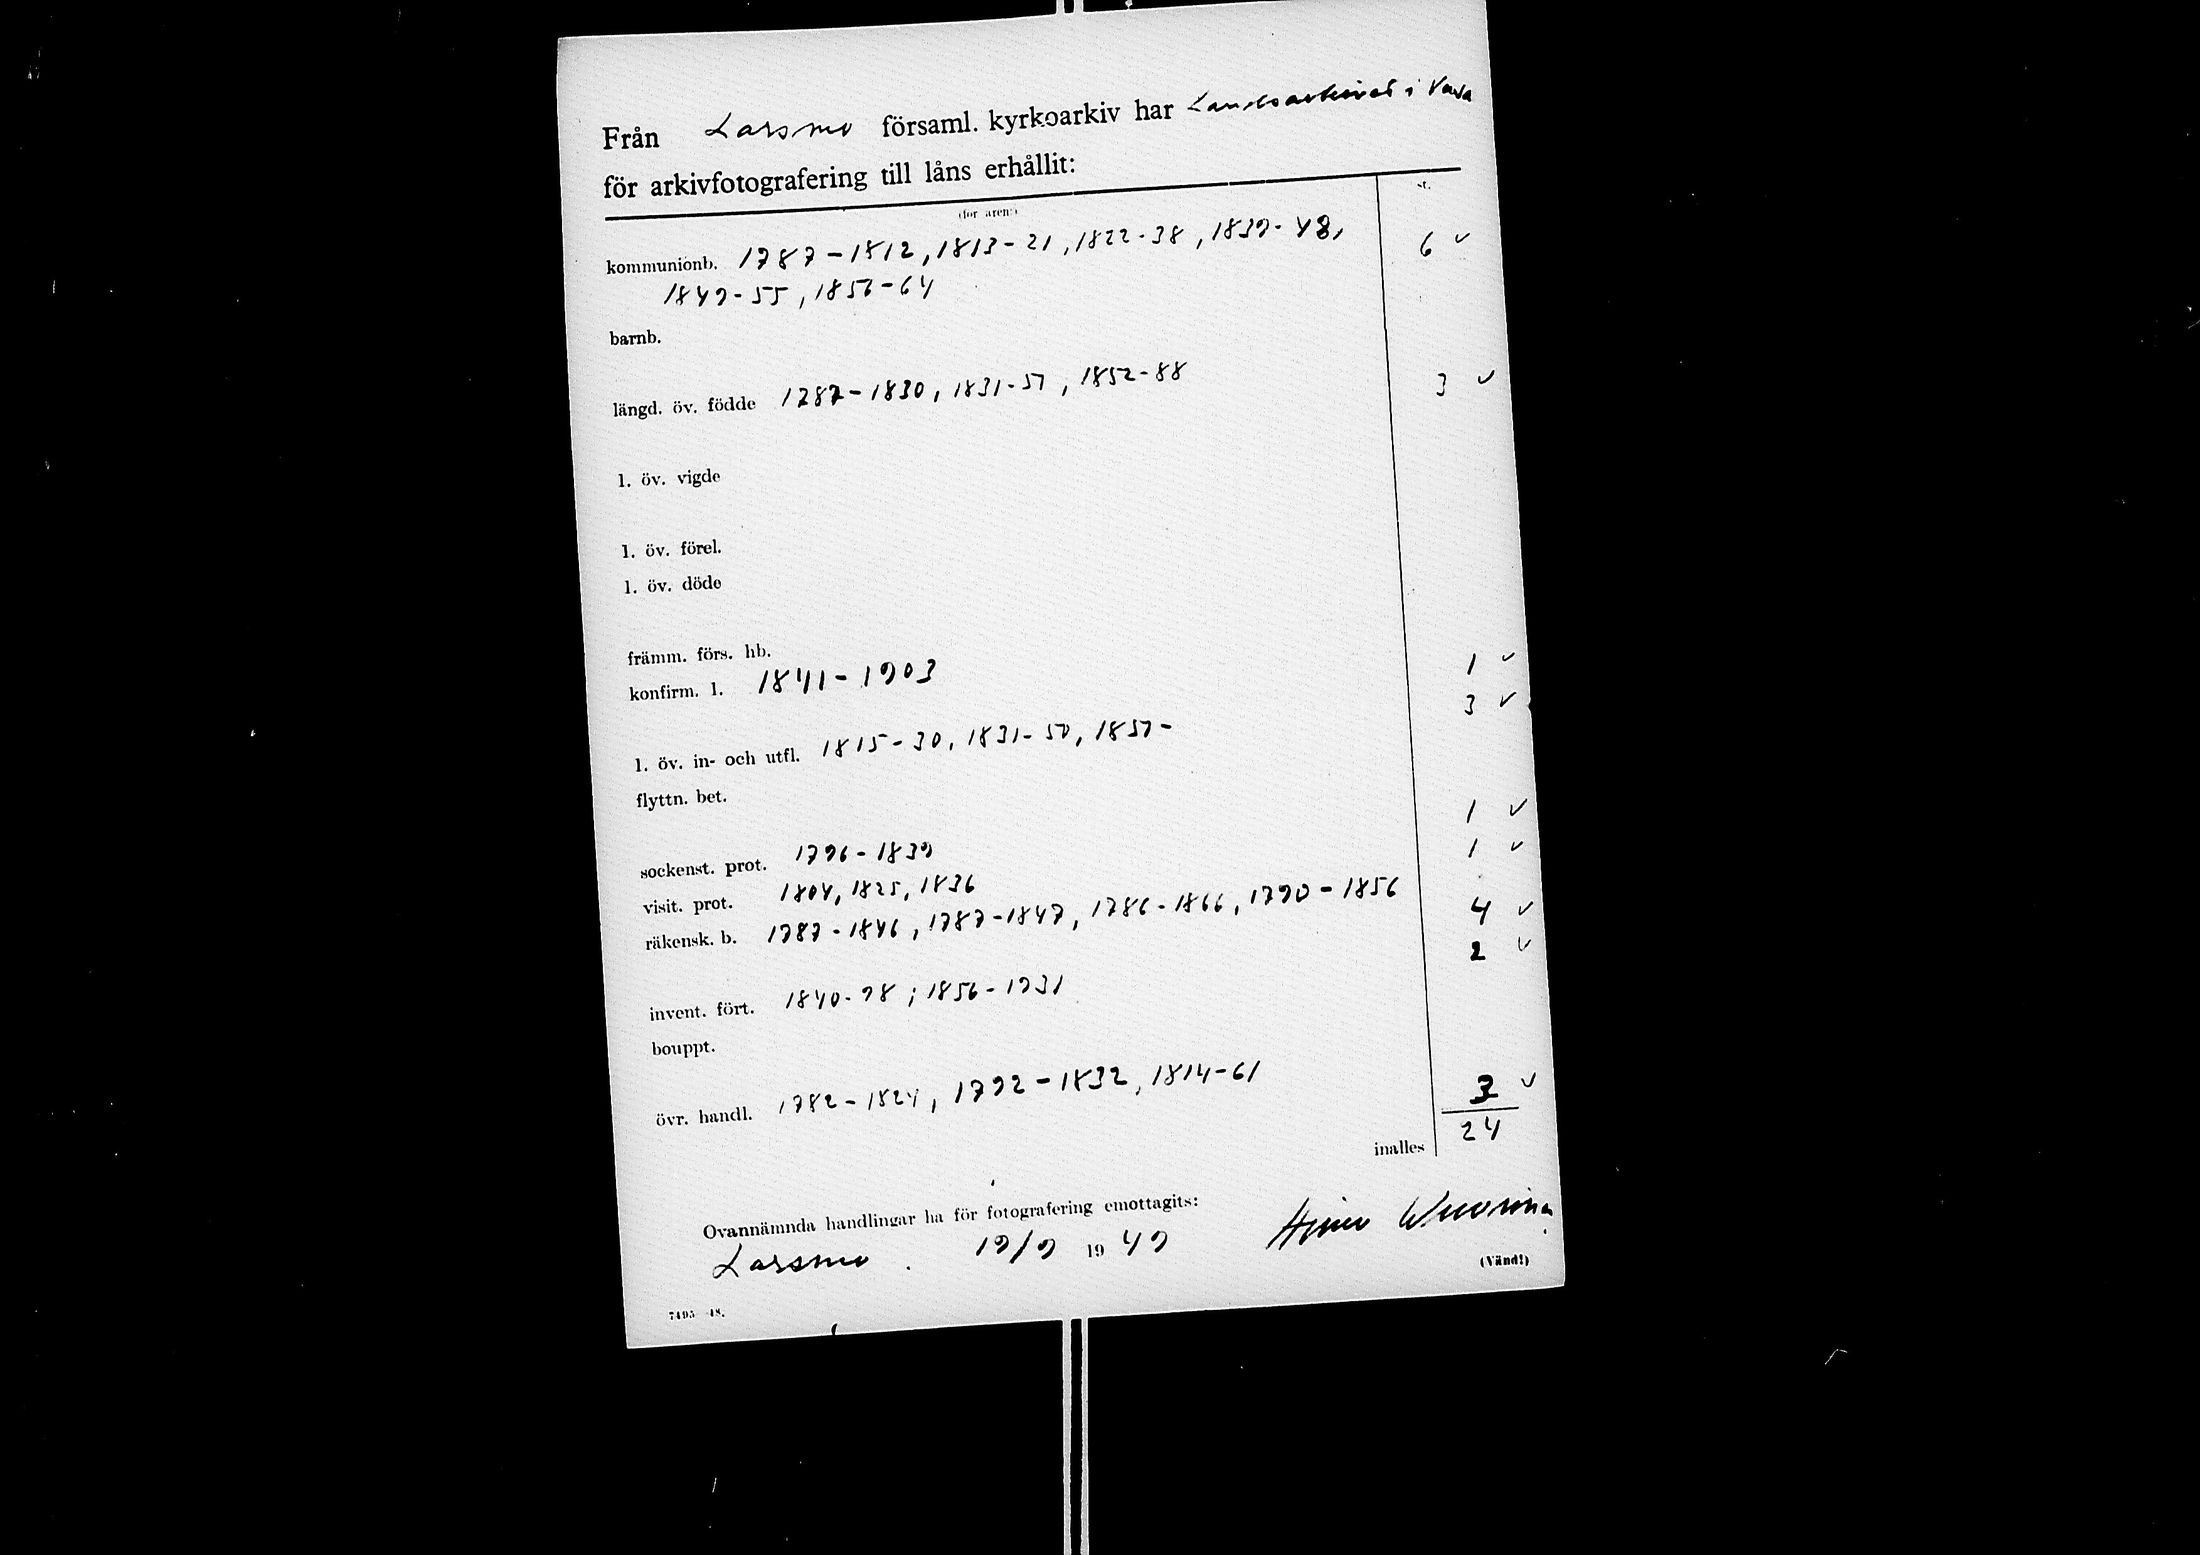 Från Larsmo församl. kyrkoarkiv har Landsarkivet i Vasa
för arkivfotografering till låns erhållit:
(för åren:) st.
kommunionb. 1787-1812, 1813-21, 1822-38, 1839-48, 6 ✓
1849-55, 1856-64
barnb.
längd. öv. födde 1787-1830, 1831-51, 1852-88 3 ✓
l. öv. vigde
l. öv. förel.
l. öv. döde
främm. förs. hb.
konfirm. l. 1841-1903 1 ✓
l. öv. in- och utfl. 1815-30, 1831-50, 1851- 3 ✓
flyttn. bet.
sockenst. prot. 1796-1839 1 ✓
visit. prot. 1804, 1825, 1836 1 ✓
räkensk. b. 1787-1846, 1787-1847, 1786-1866, 1790-1856 4 ✓
invent. fört. 1840-98; 1856-1931 2 ✓
bouppt.
övr. handl. 1782-1824, 1792-1832, 1814-61 3 ✓
inalles 24
Ovannämnda handlingar ha för fotografering emottagits:
Larsmo. 19/9 1949
(Vänd!)
7495 48.